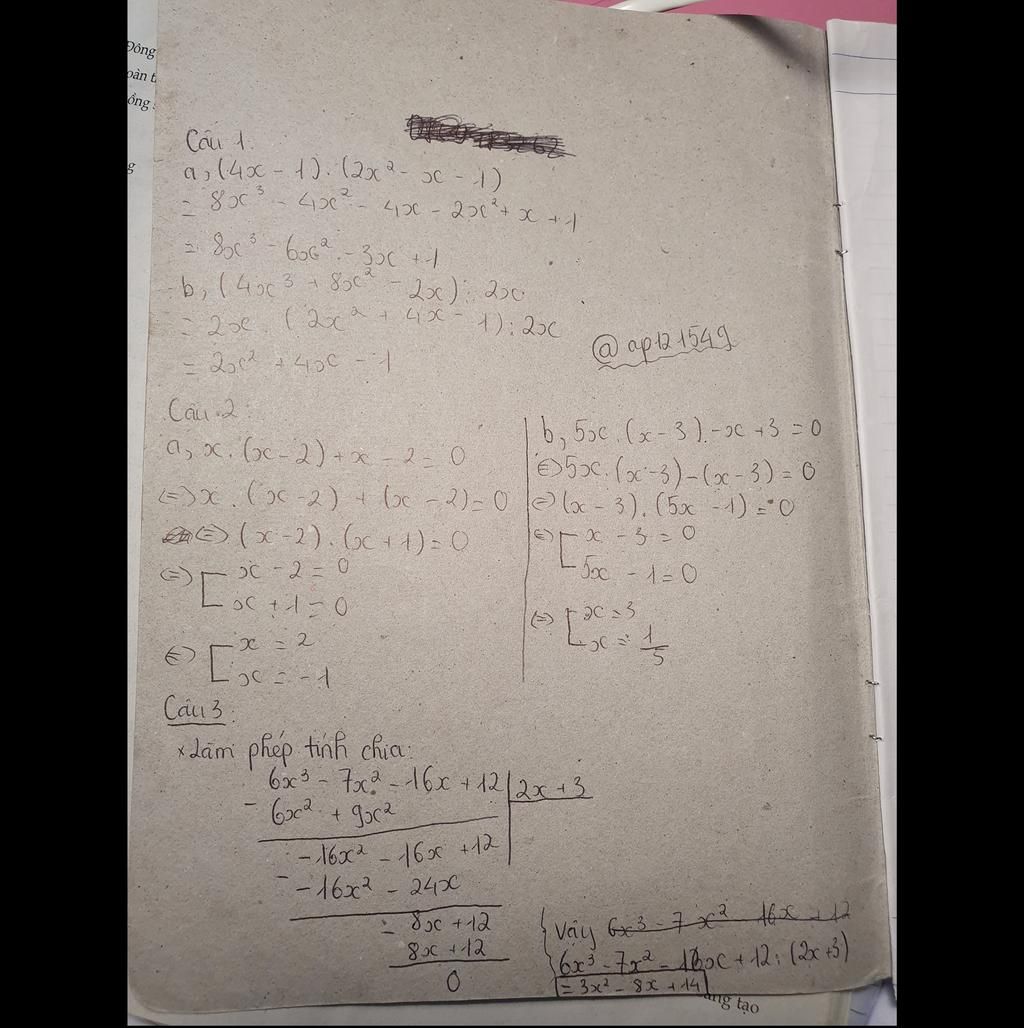 Đông
oàn t
ồng
g
Câu 1:
a, (4x - 1) . (2x² - x - 1)
= 8x³ - 4x² - 4x - 2x² + x + 1
= 8x³ - 6x² - 3x + 1
b, (4x³ + 8x² - 2x) : 2x
= 2x . (2x² + 4x - 1) : 2x
= 2x² + 4x - 1
@ap121549
Câu 2:
a, x . (x - 2) + x - 2 = 0
<=> x . (x - 2) + (x - 2) = 0
<=> (x - 2) . (x + 1) = 0
<=> [ x - 2 = 0
x + 1 = 0
<=> [ x = 2
x = -1
b, 5x . (x - 3) . - x + 3 = 0
<=> 5x . (x - 3) - (x - 3) = 0
<=> (x - 3) . (5x - 1) = 0
<=> [ x - 3 = 0
5x - 1 = 0
<=> [ x = 3
x = 1/5
Câu 3:
* Làm phép tính chia:
6x³ - 7x² - 16x + 12 | 2x + 3
- 6x² + 9x²
- 16x² - 16x + 12
- - 16x² - 24x
= 8x + 12
8x + 12
0
{ Vậy 6x³ - 7x² - 16x + 12
6x³ - 7x² - 16x + 12 : (2x + 3)
= 3x² - 8x + 14
ang tạo